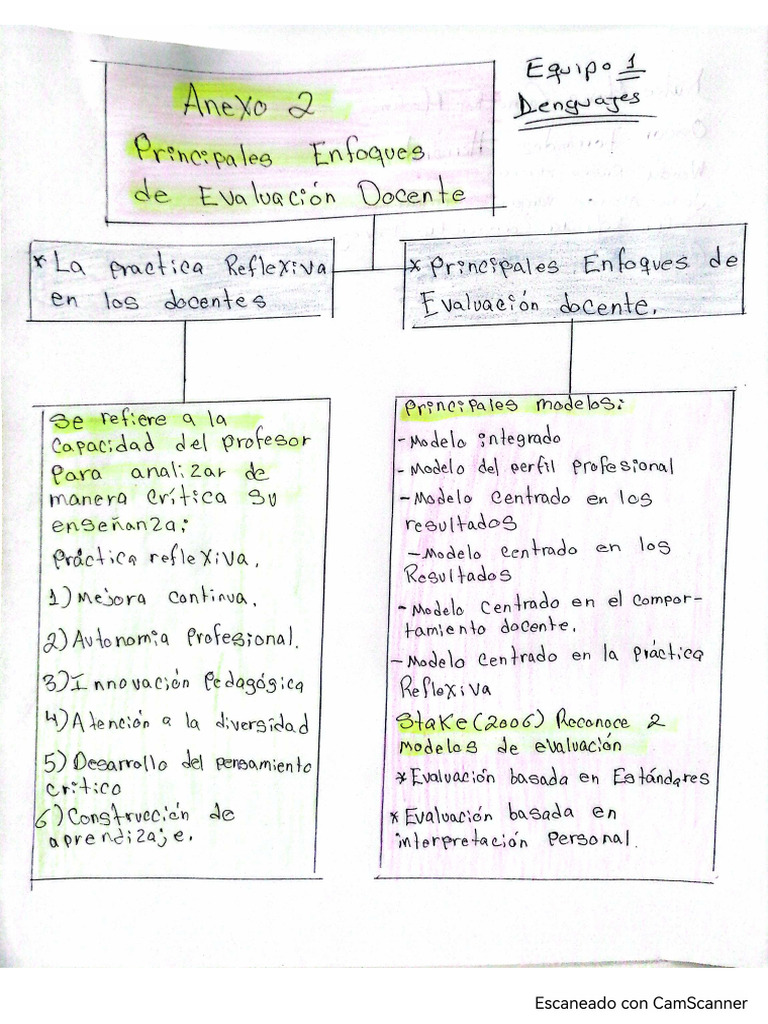 Equipo 1
Lenguajes
Anexo 2
Principales Enfoques
de Evaluación Docente
* La practica Reflexiva
en los docentes
* Principales Enfoques de
Evaluación docente.
Se refiere a la
capacidad del profesor
para analizar de
manera crítica su
enseñanza;
práctica reflexiva.
1) Mejora continua.
2) Autonomia Profesional.
3) Innovación Pedagógica
4) Atención a la diversidad
5) Desarrollo del pensamiento
crítico
6) Construcción de
aprendizaje.
Principales modelos:
- Modelo integrado
- Modelo del perfil profesional
- Modelo Centrado en los
resultados
- Modelo centrado en los
Resultados
- Modelo Centrado en el compor-
tamiento docente.
- Modelo Centrado en la práctica
Reflexiva
Stake (2006) Reconoce 2
modelos de evaluación
* Evaluación basada en Estándares
* Evaluación basada en
interpretación Personal.
Escaneado con CamScanner